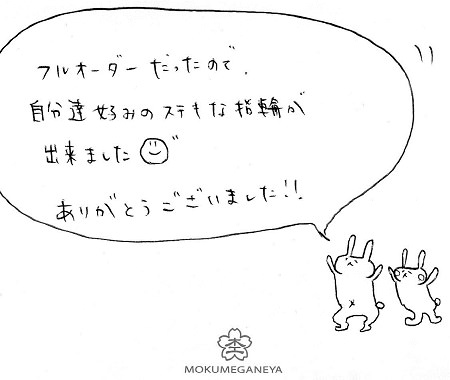 フルオーダーだったので、
自分達好みのステキな指輪が
出来ました
ありがとうございました!!
MOKUMEGANEYA